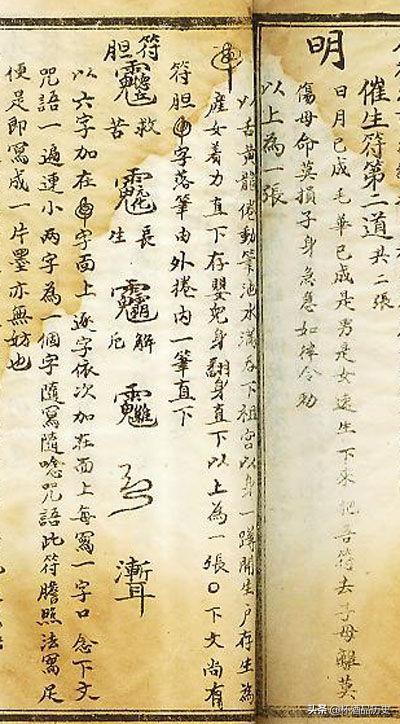 催生符第二道 共二張
明
日月已成毛華已成是男是女速生下來把吾符去子母離莫
傷母命莫損子身急急如律令勅
以上為一張
以舌黃龍倦動筆池水滿吞下祖宫以身一蹲開生户存生為
產女着力直下存嬰兒身翻身直下以上為一張〇下文尚有
符胆字落筆由外捲内一筆直下
符胆
救苦 長生 解厄
以六字加在字面上逐字依次加在面上每寫一字口念下文
咒語一遍連小两字為一個字隨寫隨唸咒語此符膽照法寫足
便是即寫成一片墨亦無妨也
头条 @怀酒品历史